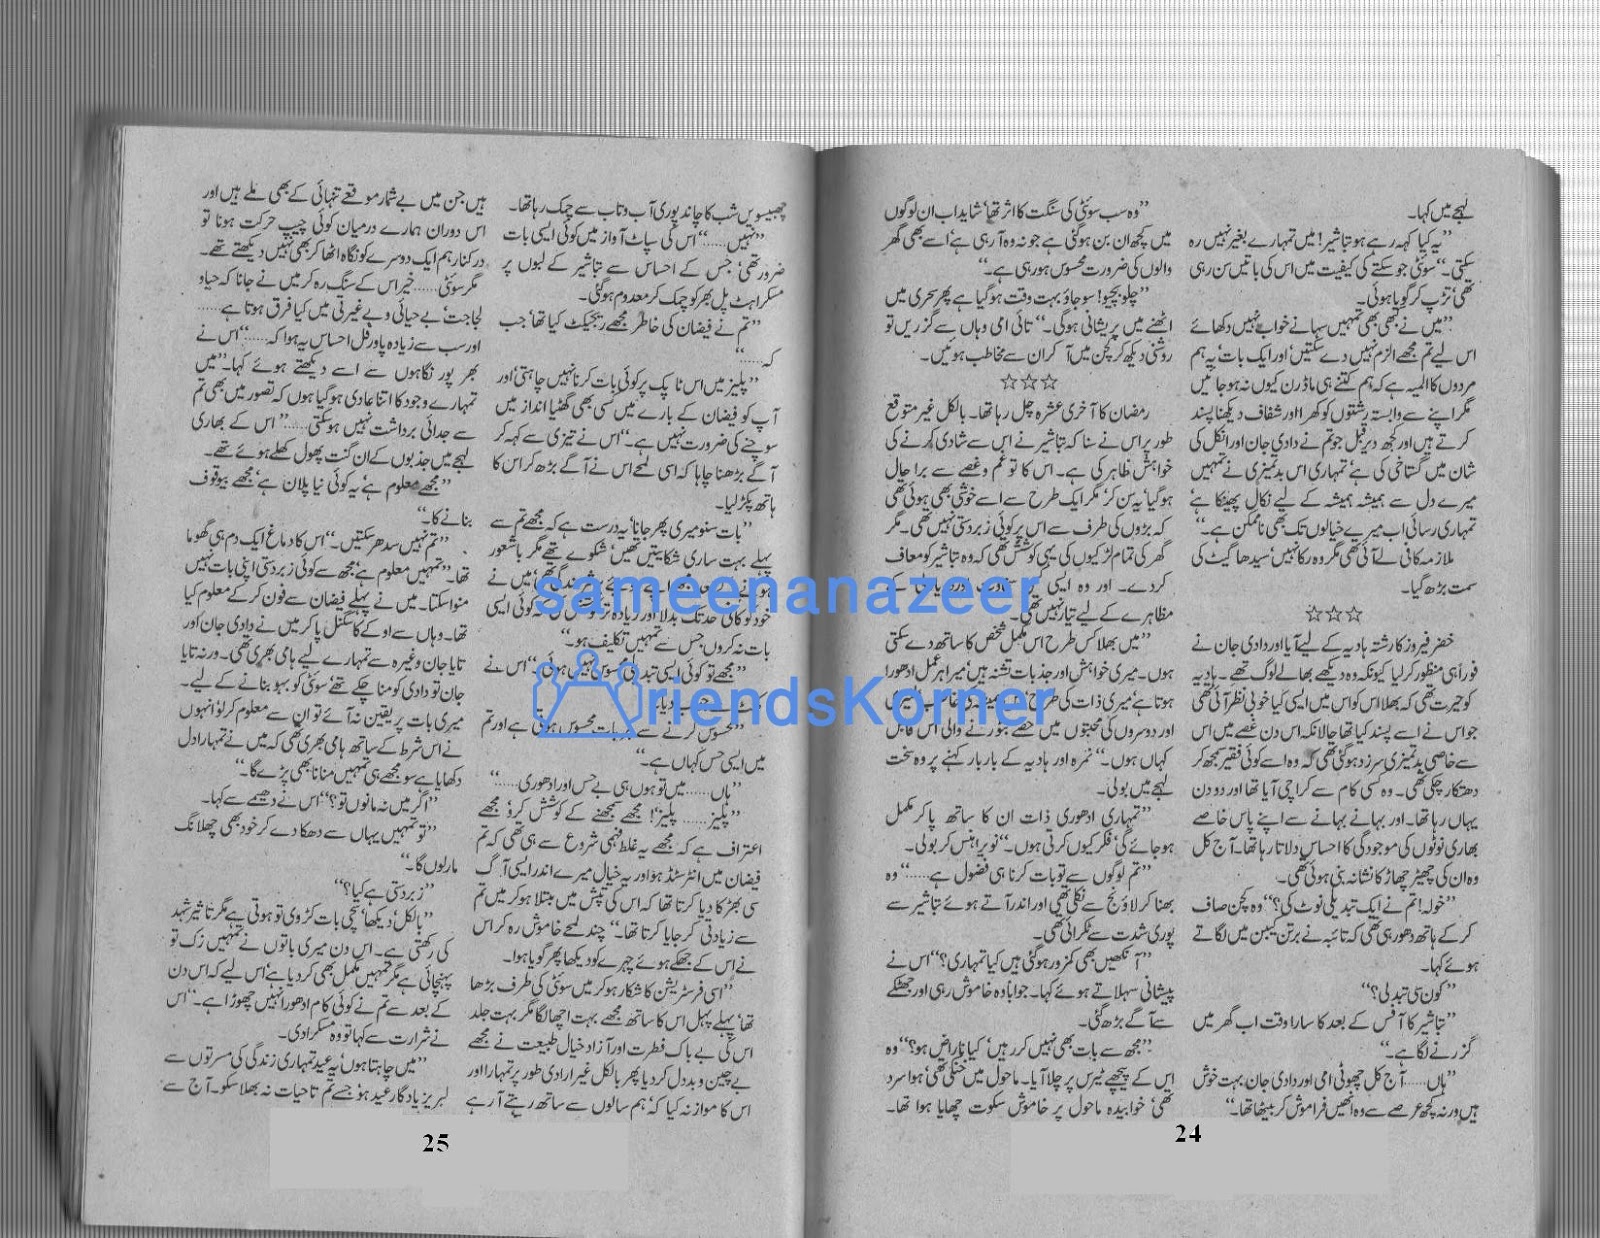 لہجے میں کہا۔
”یہ کیا کہہ رہے ہو تباشیر! میں تمہارے بغیر نہیں رہ
سکتی۔“ سوئٹی جو سکتے کی کیفیت میں اس کی باتیں سن رہی
تھی‘ تڑپ کر گویا ہوئی۔
”میں نے کبھی بھی تمہیں سہانے خواب نہیں دکھائے
اس لیے تم مجھے الزم نہیں دے سکتیں‘ اور ایک بات‘ یہ ہم
مردوں کا المیہ ہے کہ ہم کتنے ہی ماڈرن کیوں نہ ہو جائیں
مگر اپنے سے وابستہ رشتوں کو کھرا اور شفاف دیکھنا پسند
کرتے ہیں اور کچھ دیر قبل جو تم نے دادی جان اور انکل کی
شان میں گستاخی کی ہے‘ تمہاری اس بدتمیزی نے تمہیں
میرے دل سے ہمیشہ ہمیشہ کے لیے نکال پھینکا ہے‘
تمہاری رسائی اب میرے خیالوں تک بھی ناممکن ہے۔“
ملازمہ کافی لے آئی تھی مگر وہ رکا نہیں‘ سیدھا گیٹ کی
سمت بڑھ گیا۔
☆☆☆
خضر فیروز کا رشتہ ہادیہ کے لیے آیا اور دادی جان نے
فوراً ہی منظور کر لیا کیونکہ وہ دیکھے بھالے لوگ تھے۔ ہادیہ
کو حیرت تھی کہ بھلا اس کو اس میں ایسی کیا خوبی نظر آئی تھی
جو اس نے اسے پسند کیا تھا حالانکہ اس دن غصے میں اس
سے خاصی بدتمیزی سرزد ہو گئی تھی کہ وہ اسے کوئی فقیر سمجھ کر
دھتکار چکی تھی۔ وہ کسی کام سے کراچی آیا تھا اور دو دن
یہاں رہا تھا۔ اور بہانے بہانے سے اپنے پاس خاصے
بھاری نوٹوں کی موجودگی کا احساس دلاتا رہا تھا۔ آج کل
وہ ان کی چھیڑ چھاڑ کا نشانہ بنی ہوئی تھی۔
”خولہ! تم نے ایک تبدیلی نوٹ کی؟“ وہ کچن صاف
کر کے ہاتھ دھو رہی تھی کہ تائبہ نے برتن کیبن میں لگاتے
ہوئے کہا۔
”کون سی تبدلی؟“
”تباشیر کا آفس کے بعد کا سارا وقت اب گھر میں
گزرنے لگا ہے۔“
”ہاں...... آج کل چھوٹی امی اور دادی جان بہت خوش
ہیں ورنہ کچھ عرصے سے وہ انھیں فراموش کر بیٹھا تھا۔“
”وہ سب سوئٹی کی سنگت کا اثر تھا‘ شاید اب ان لوگوں
میں کچھ ان بن ہو گئی ہے جو نہ وہ آ رہی ہے‘ اسے بھی گھر
والوں کی ضرورت محسوس ہو رہی ہے۔“
”چلو بچیو! سو جاؤ بہت وقت ہو گیا ہے پھر سحری میں
اٹھنے میں پریشانی ہوگی۔“ تائی امی وہاں سے گزریں تو
روشنی دیکھ کر کچن میں آ کر ان سے مخاطب ہوئیں۔
☆☆☆
رمضان کا آخری عشرہ چل رہا تھا۔ بالکل غیر متوقع
طور پر اس نے سنا کہ تباشیر نے اس سے شادی کرنے کی
خواہش ظاہر کی ہے۔ اس کا تو غم و غصے سے برا حال
ہو گیا‘ یہ سن کر‘ مگر ایک طرح سے اسے خوشی بھی ہوئی تھی
کہ بڑوں کی طرف سے اس پر کوئی زبردستی نہیں تھی۔ مگر
گھر کی تمام لڑکیوں کی یہی کوشش تھی کہ وہ تباشیر کو معاف
کر دے۔ اور وہ ایسی کسی کے
مظاہرے کے لیے تیار نہیں تھی۔
”میں بھلا کس طرح اس مکمل شخص کا ساتھ دے سکتی
ہوں۔ میری خواہش اور جذبات تشنہ ہیں‘ میرا ہر عمل ادھورا
ہوتا ہے‘ میری ذات کی طرح
اور دوسروں کی محبتوں میں حصے بٹورنے والی اس قابل
کہاں ہوں۔“ نمرہ اور ہادیہ کے بار بار کہنے پر وہ سخت
لہجے میں بولی۔
”تمہاری ادھوری ذات ان کا ساتھ پا کر مکمل
ہو جائے گی‘ فکر کیوں کرتی ہوں۔“ نویرا ہنس کر بولی۔
”تم لوگوں سے تو بات کرنا ہی فضول ہے......“ وہ
بھنا کر لاؤنج سے نکلی تھی اور اندر آتے ہوئے تباشیر سے
پوری شدت سے ٹکرائی تھی۔
”آنکھیں بھی کمزور ہو گئی ہیں کیا تمہاری؟“ اس نے
پیشانی سہلاتے ہوئے کہا۔ جواباً وہ خاموش رہی اور جھٹکے
سے آگے بڑھ گئی۔
”مجھ سے بات بھی نہیں کر رہیں‘ کیا ناراض ہو؟“ وہ
اس کے پیچھے ٹیرس پر چلا آیا۔ ماحول میں خنکی تھی‘ ہوا سرد
تھی‘ خوابیدہ ماحول پر خاموش سکوت چھایا ہوا تھا۔
24
چھبیسویں شب کا چاند پوری آب و تاب سے چمک رہا تھا۔
”نہیں......“ اس کی سپاٹ آواز میں کوئی ایسی بات
ضرور تھی‘ جس کے احساس سے تباشیر کے لبوں پر
مسکراہٹ پل بھر کو چمک کر معدوم ہو گئی۔
”تم نے فیضان کی خاطر مجھے ریجیکٹ کیا تھا‘ جب
کہ......“
”پلیز میں اس ٹاپک پر کوئی بات کرنا نہیں چاہتی‘ اور
آپ کو فیضان کے بارے میں کسی بھی گھٹیا انداز میں
سوچنے کی ضرورت نہیں ہے۔“ اس نے تیزی سے کہہ کر
آگے بڑھنا چاہا کہ اسی لمحے اس نے آگے بڑھ کر اس کا
ہاتھ پکڑ لیا۔
”بات سنو میری پھر جانا‘ یہ درست ہے کہ مجھے تم سے
پہلے بہت ساری شکایتیں تھیں‘ شکوے تھے مگر باشعور
ہونے کے بعد شرمندگی تھی‘ میں نے
خود کو کافی حد تک بدلا اور زیادہ تر کوشش کی کہ کوئی ایسی
بات نہ کروں جس سے تمہیں تکلیف ہو۔“
”مجھے تو کوئی ایسی تبدیلی محسوس نہیں ہوئی۔“ اس نے
جواب دیا۔
”محسوس کرنے سے ہر بات محسوس ہوتی ہے اور تم
میں ایسی حس کہاں ہے۔“
”ہاں...... میں تو ہوں ہی بے حس اور ادھوری......“
”پلیز...... پلیز! مجھے سمجھنے کے کوشش کرو‘ مجھے
اعتراف ہے کہ مجھے یہ غلط فہمی شروع سے ہی تھی کہ تم
فیضان میں انٹرسٹڈ ہو‘ اور یہ خیال میرے اندر ایسی آگ
سی بھڑکا دیا کرتا تھا کہ اس کی تپش میں مبتلا ہو کر میں تم
سے زیادتی کر جایا کرتا تھا۔“ چند لمحے خاموش رہ کر اس
نے اس کے جھکے ہوئے چہرے کو دیکھا پھر گویا ہوا۔
”اسی فرسٹریشن کا شکار ہو کر میں سوئٹی کی طرف بڑھا
تھا‘ پہلے پہل اس کا ساتھ مجھے بہت اچھا لگا مگر بہت جلد
اس کی بے باک فطرت اور آزاد خیال طبیعت نے مجھے
بے چین و بددل کر دیا‘ پھر بالکل غیر ارادی طور پر تمہارا اور
اس کا موازنہ کیا کہ‘ ہم سالوں سے ساتھ رہتے آ رہے
ہیں جن میں بے شمار موقعے تنہائی کے بھی ملے ہیں اور
اس دوران ہمارے درمیان کوئی چیپ حرکت ہونا تو
درکنار ہم ایک دوسرے کو نگاہ اٹھا کر بھی نہیں دیکھتے تھے۔
مگر سوئٹی...... خیر اس کے سنگ رہ کر میں نے جانا کہ حیا و
لجاجت‘ بے حیائی و بے غیرتی میں کیا فرق ہوتا ہے......
اور سب سے زیادہ پاور فل احساس یہ ہوا کہ......“ اس نے
بھرپور نگاہوں سے اسے دیکھتے ہوئے کہا۔ ”میں
تمہارے وجود کا اتنا عادی ہو گیا ہوں کہ تصور میں بھی تم
سے جدائی برداشت نہیں ہو سکتی......“ اس کے بھاری
لہجے میں جذبوں کے ان گنت پھول کھلے ہوئے تھے۔
”مجھے معلوم ہے‘ یہ کوئی نیا پلان ہے‘ مجھے بیوقوف
بنانے کا۔“
”تم نہیں سدھر سکتیں۔“ اس کا دماغ ایک دم ہی گھوما
تھا۔ ”تمہیں معلوم ہے‘ مجھ سے کوئی زبردستی اپنی بات نہیں
منوا سکتا۔ میں نے پہلے فیضان سے فون کر کے معلوم کیا
تھا۔ وہاں سے او کے کا سگنل پا کر میں نے دادی جان اور
تایا جان وغیرہ سے تمہارے لیے ہامی بھری تھی۔ ورنہ تایا
جان تو دادی کو منا چکے تھے‘ سوئٹی کو بہو بنانے کے لیے۔
میری بات پر یقین نہ آئے تو ان سے معلوم کر لو‘ انہوں
نے اس شرط کے ساتھ ہامی بھری تھی کہ میں نے تمہارا دل
دکھایا ہے سو مجھے ہی تمہیں منانا بھی پڑے گا۔“
”اگر میں نہ مانوں تو؟“ اس نے دھیمے سے کہا۔
”تو تمہیں یہاں سے دھکا دے کر خود بھی چھلانگ
مار لوں گا۔“
”زبردستی ہے کیا؟“
”بالکل‘ دیکھا‘ سچی بات کڑوی تو ہوتی ہے مگر تاثیر شہد
کی رکھتی ہے۔ اس دن میری باتوں نے تمہیں زک تو
پہنچائی ہے مگر تمہیں مکمل بھی کر دیا ہے‘ اس لیے کہ اس دن
کے بعد سے تم نے کوئی کام ادھورا نہیں چھوڑا ہے۔“ اس
نے شرارت سے کہا تو وہ مسکرا دی۔
”میں چاہتا ہوں‘ یہ عید تمہاری زندگی کی مسرتوں سے
لبریز یادگار عید ہو‘ جسے تم تا حیات نہ بھلا سکو۔ آج سے
25
sameenanazeer
riendsKorner